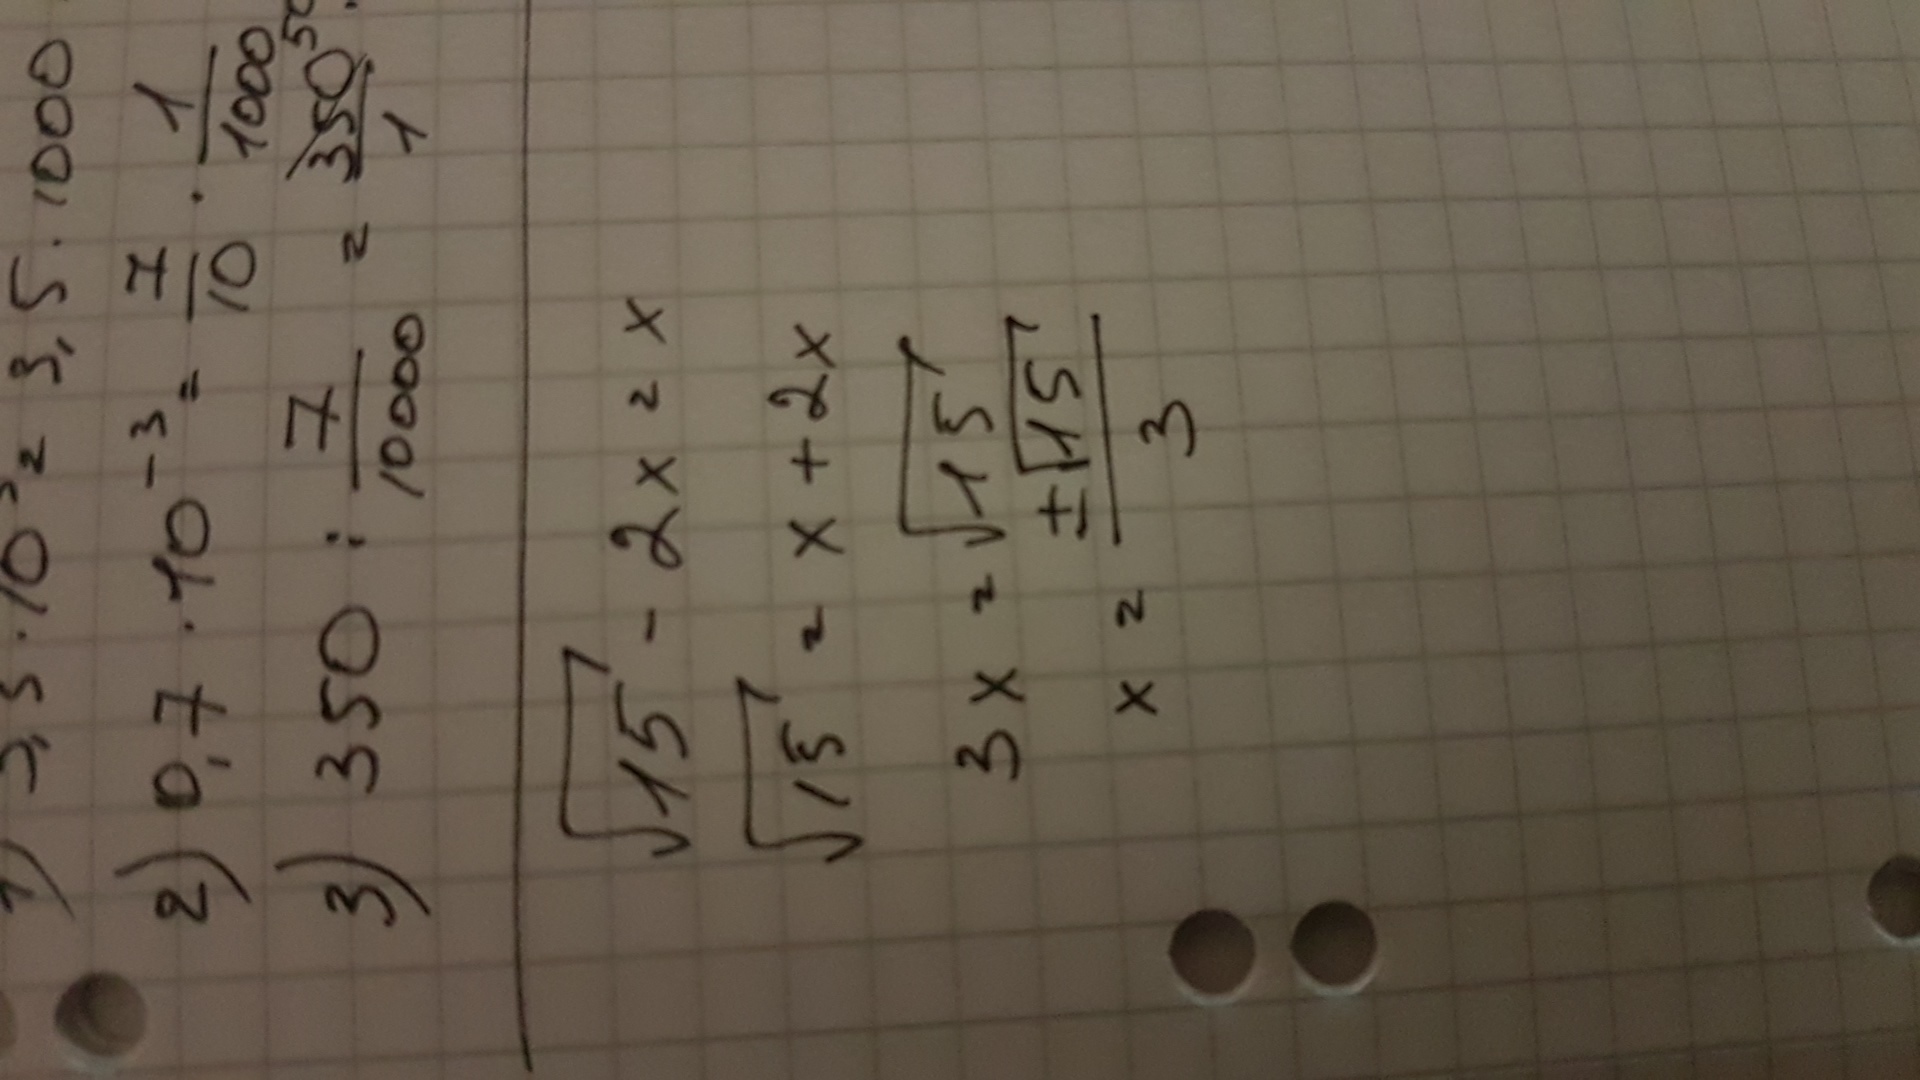 1) 3,5 · 10³ = 3,5 · 1000
2) 0,7 · 10⁻³ = 7/10 · 1/1000
3) 350 : 7/10000 = 350/1
√15 - 2x = x
√15 = x + 2x
3x = √15
x = ±√15/3